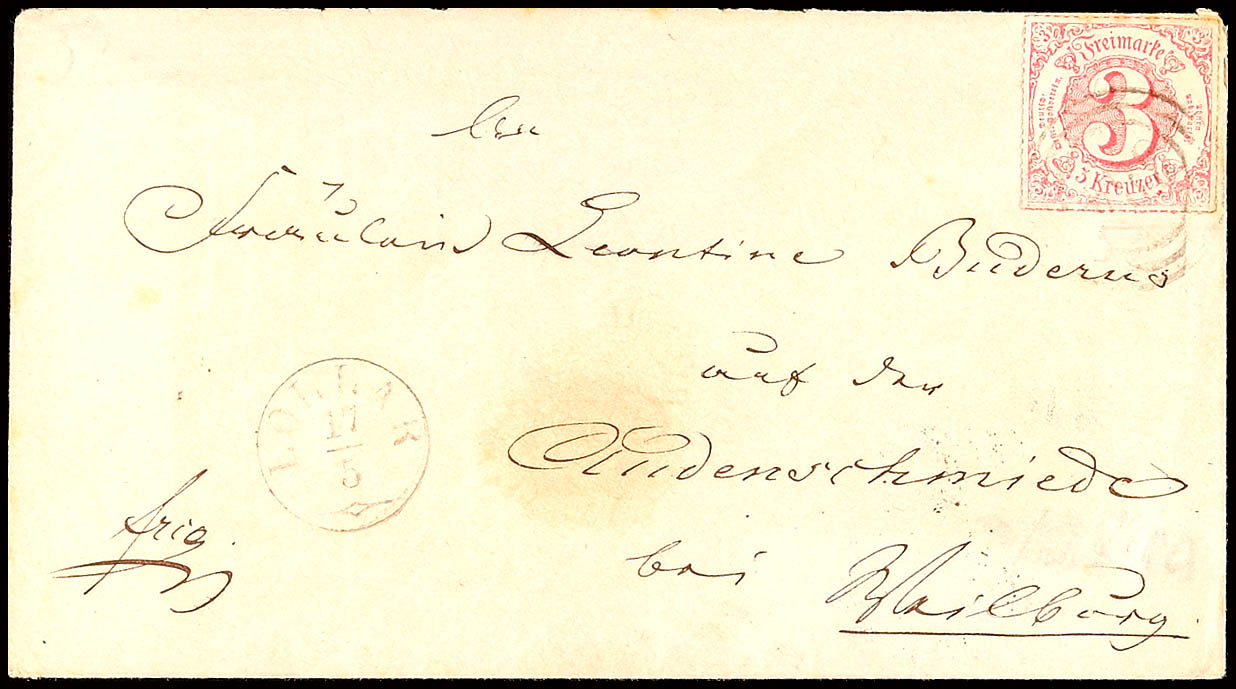 3
Freimarke
3
3 Kreuzer
An
Fräulein Leontine Buderus
auf der
Audenschmiede
bei Weilburg
LOLLAR
17
5
frei